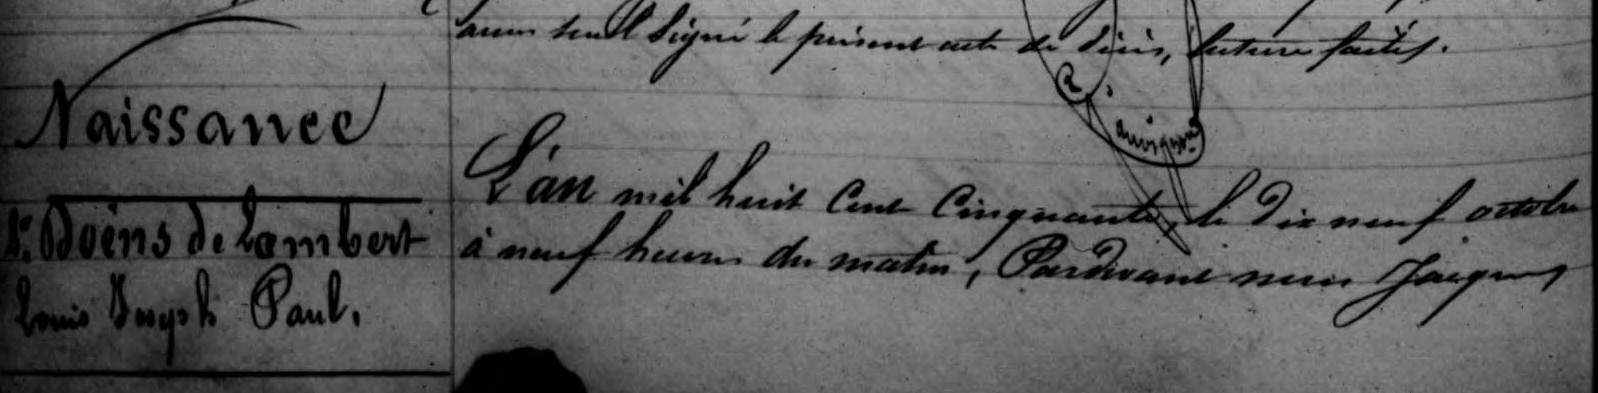 avons seul signé le présent acte de décès, lecture faite.
Naissance
Sr. Doëns de Lambert
Louis Joseph Paul.
L'an mil huit Cent Cinquante, le dix neuf octobre
à neuf heures du matin, Pardevant nous Jacques